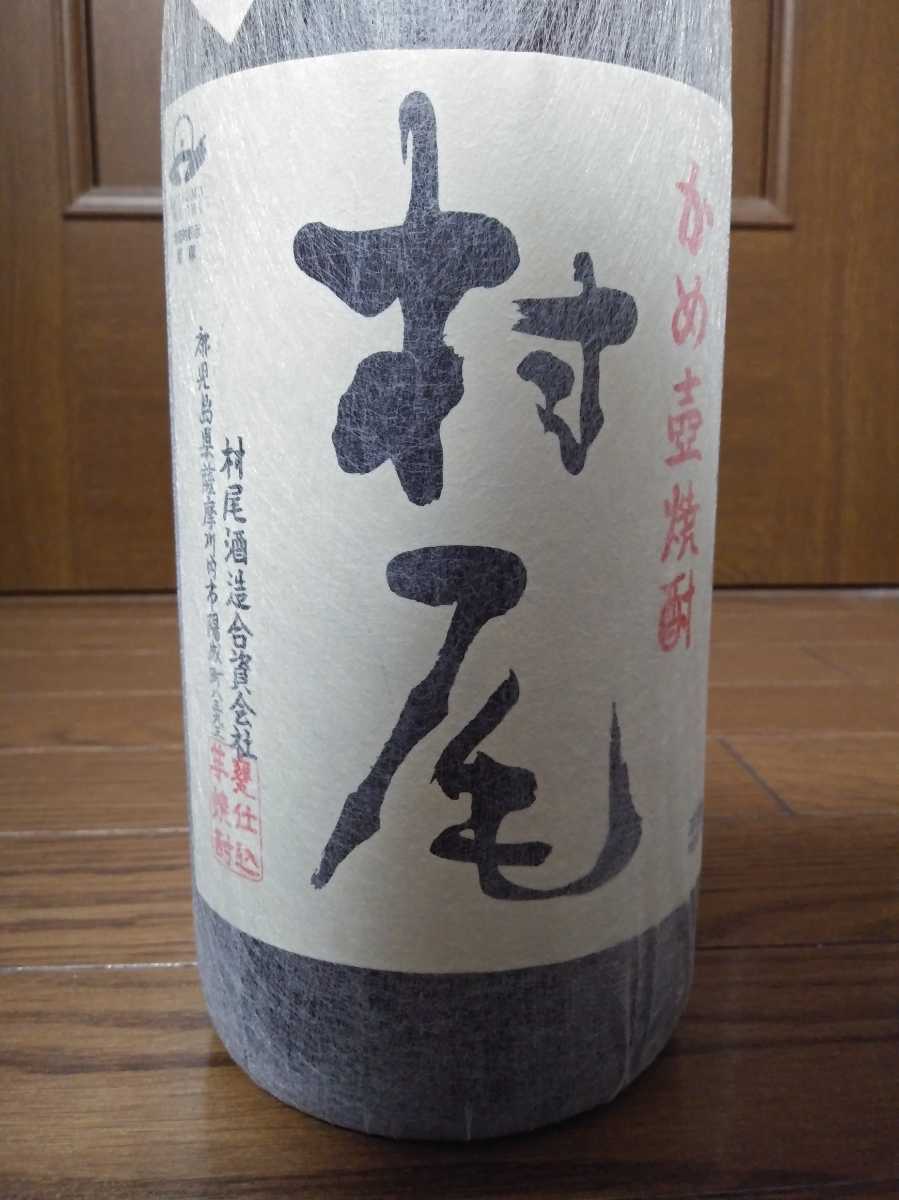 かめ壺焼酎
村尾
村尾酒造合資会社
鹿児島県薩摩川内市陽成町
甕仕込
芋焼酎